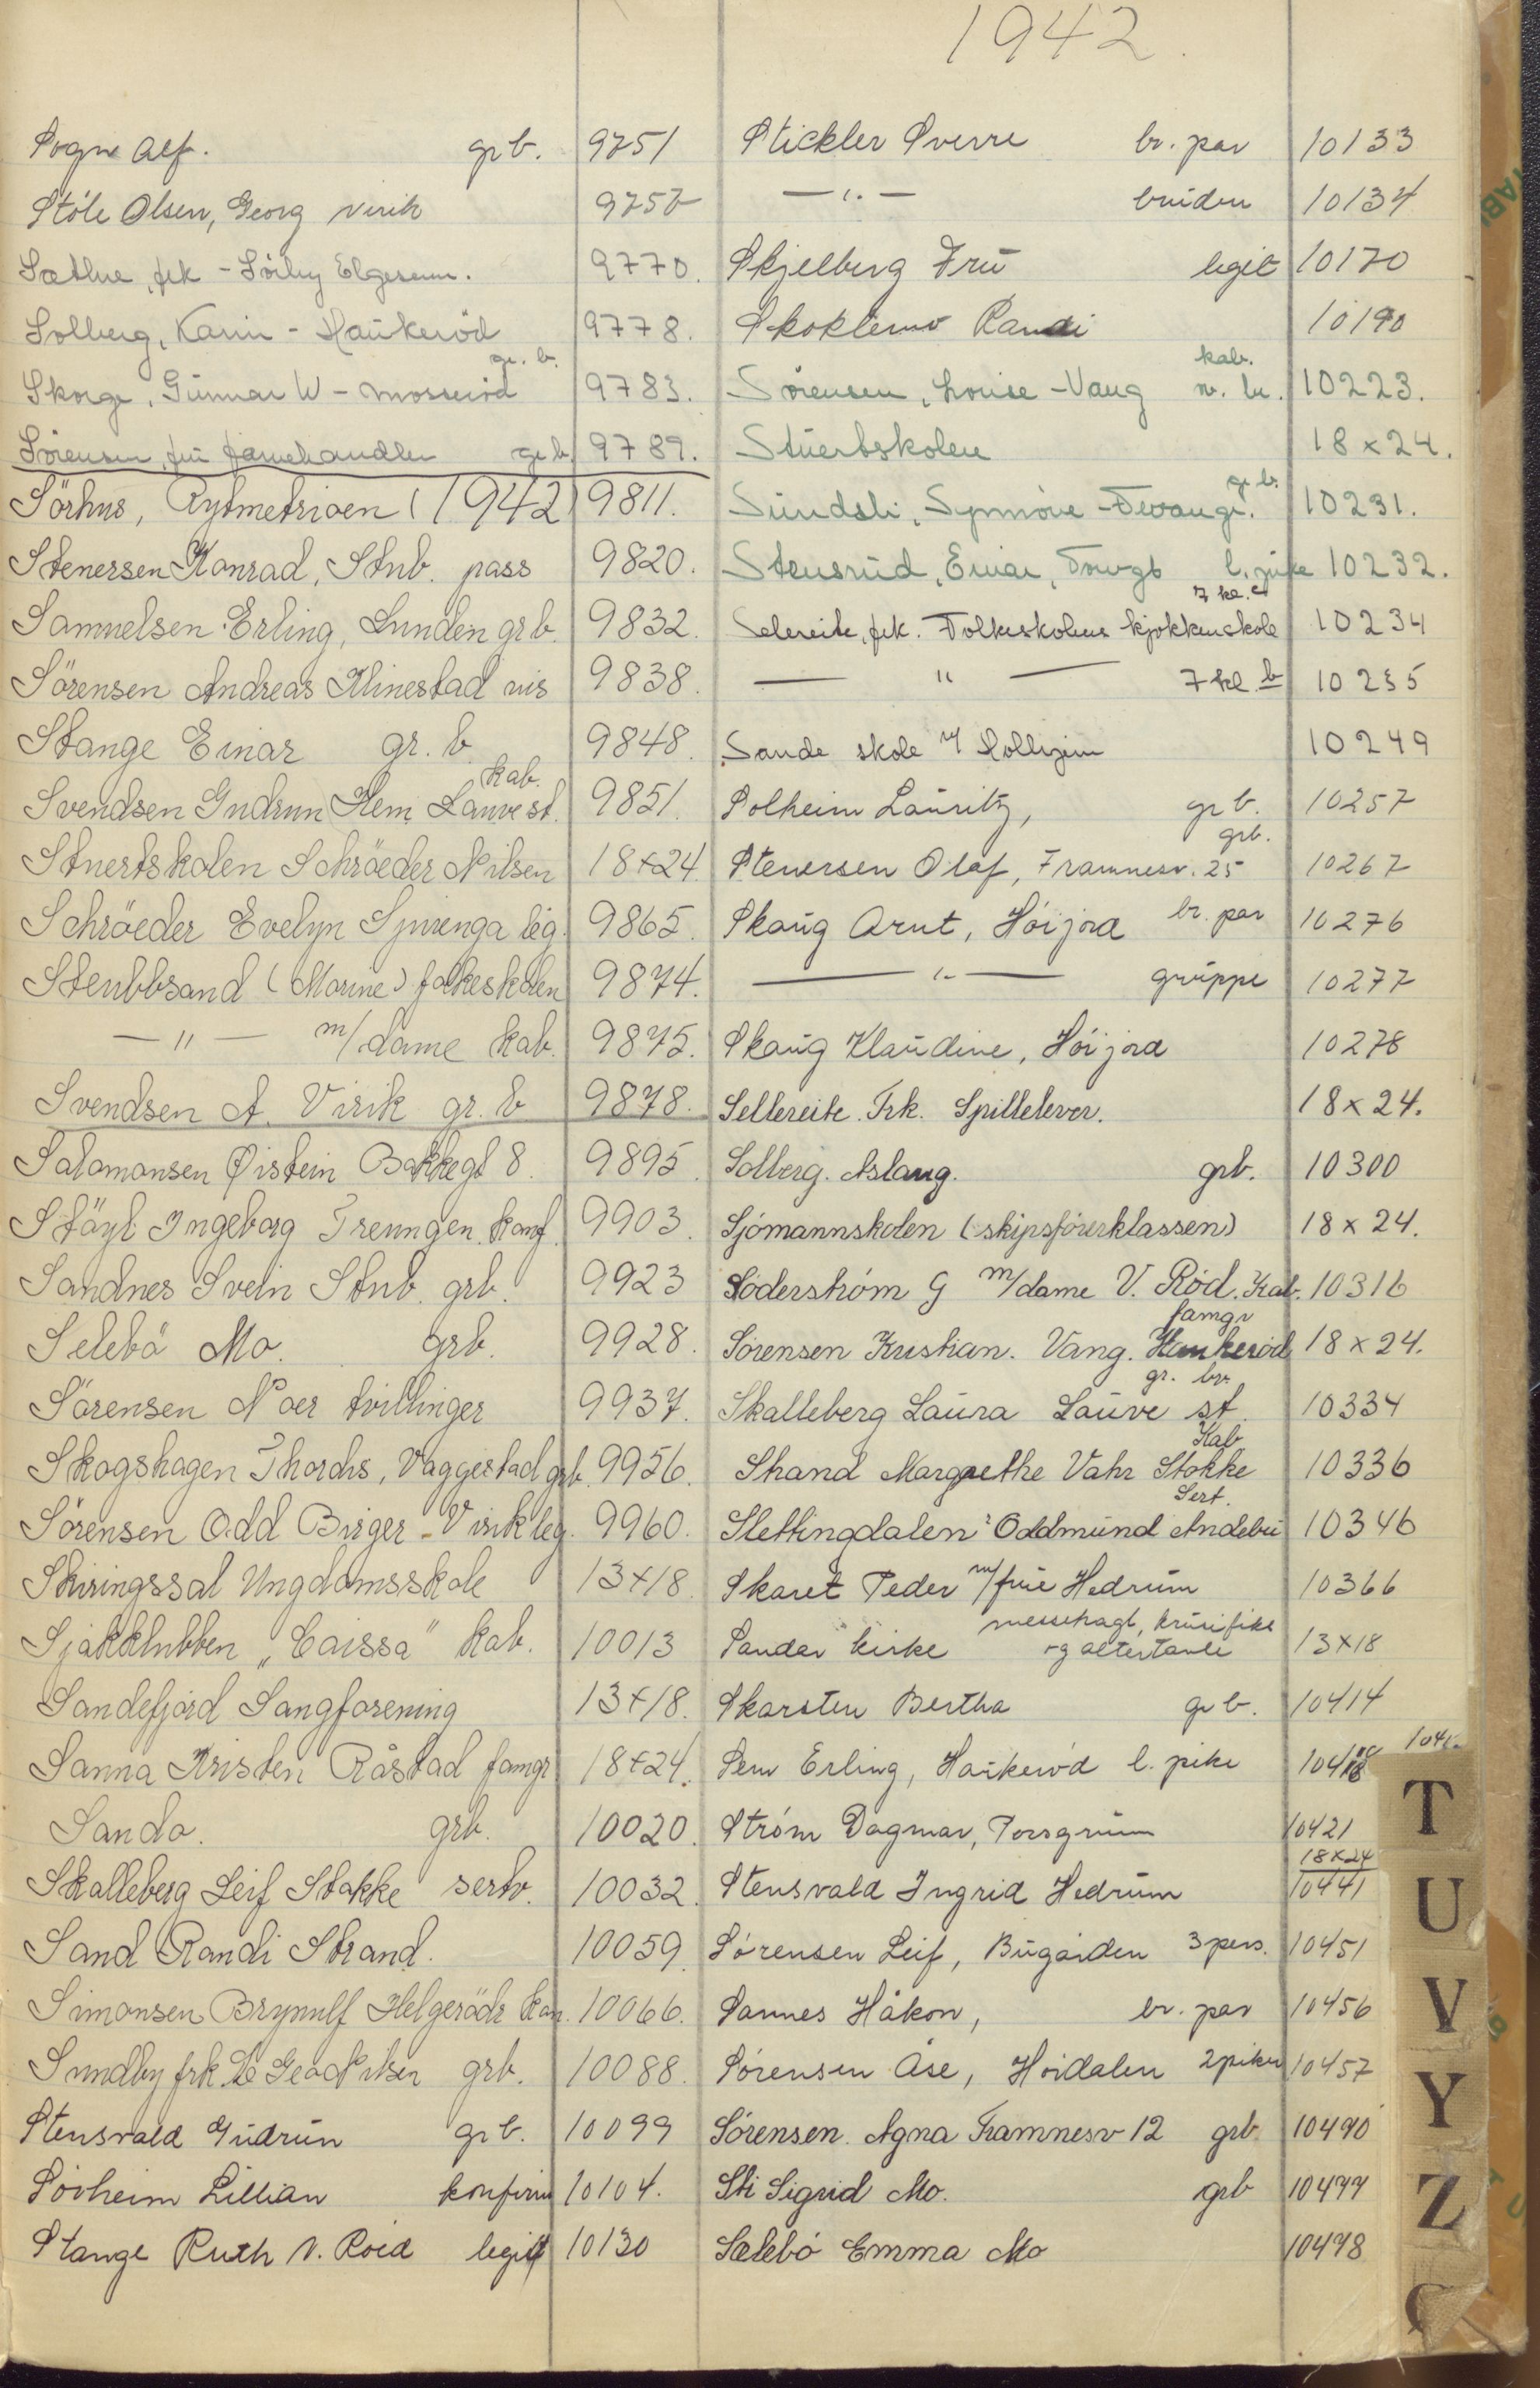 1942.
Sogn Alf. gr b. 9751
Støle Olsen, Georg Virik 9757
Sæthre, frk - Sörby Elgesem. 9770.
Solberg, Karin - Haukeröd 9778.
gr. b.
Skorge, Gunnar W - Mosseröd 9783.
Sörensen, fru farvehandler gr b. 9789.
Sörhus, Rytmetrioen (1942) 9811.
Stenersen Konrad, Stub. pass 9820.
Samuelsen Erling, Lunden gr b. 9832.
Sörensen Andreas Klinestad vis 9838.
Stange Einar gr. b. 9848.
kab.
Svendsen Gudrun Hem Lauve st. 9851.
Stuertskolen Schröeder Nilsen 18x24.
Schröeder Evelyn Spirenga leg. 9865.
Stenbbsand (Marine) folkeskolen 9874.
— " — m/dame kab. 9875.
Svendsen A. Virik gr. b 9878.
Salomonsen Øistein Bakkegt 8. 9895
Stöyl Ingeborg Treungen. konf. 9903.
Sandnes Svein Stub. grb. 9923
Selebö Mo. grb. 9928.
Sörensen Noer tvillinger 9937.
Skogshagen Thordis, Vaggestad grb. 9956.
Sörensen Odd Birger - Virik leg. 9960.
Skiringssal Ungdomsskole 13x18.
Sjakklubben "Caissa" kab. 10013
Sandefjord Sangforening 13x18.
Sanna Kristen Råstad famgr 18x24.
Sando. grb. 10020.
Skalleberg Leif Stokke serto. 10032.
Sand Randi Strand. 10059.
Simonsen Brynulf Helgeröds kon. 10066.
Sundby frk Nilsen grb. 10088.
Stensvald Gudrun gr b. 10099
Sörheim Lillian konfirm 10104.
Stange Ruth V. Roed legit 10130
Stickler Sverre br. par 10133
— " — bruden 10134
Skjelberg Fru legit 10170
Skoklemo Randi 10190
kab.
Sörensen, Louise - Vang n. br. 10223.
Stuertskolen 18x24.
gr. b.
Sundsli, Synnöve - 10231.
Stensrud, Einar, l. pike 10232.
7 kl. c
Selereite, frk. Folkeskolens kjøkkenskole 10234
— " — 7 kl. b 10235
Sande skole v/ Solheim 10249
Solheim Lauritz, gr b. 10257
grb.
Stenersen Olaf, Framnesv. 25 10267
Skaug Arnt, Höijord br. par 10276
— " — gruppe 10277
Skaug Klaudine, Höijord 10278
Sellereite. Frk. Spillelever. 18x24.
Solberg. Aslaug. grb. 10300
Sjömannskolen (skipsförerklassen) 18x24.
Söderström G m/dame V. Röd. Kab. 10316
famgr
Sörensen Kristian. Vang. Haukeröd 18x24.
gr. br.
Skalleberg Laura Lauve st. 10334
Kab
Strand Margrethe Vahr Stokke 10336
Sert.
Slettingdalen Oddmund Andebu 10346
Skaret Peder m/frue Hedrum 10366
messehagl, krusifiks
Sandar kirke og altertavle 13x18
Skarsten Bertha gr b. 10414
Sem Erling, Haukeröd l. pike 10418
Ström Dagmar, Porsgrunn 10421
18x24
Stensvald Ingrid Hedrum 10441
Sörensen Leif, Bugården 3 pers. 10451
Sannes Håkon, br. par 10456
Sörensen Åse, Höidalen 2 piker 10457
Sörensen. Agna Framnesv 12 grb 10490
Sti Sigrid Mo. grb 10497
Sælebö Emma Mo 10498
T
U
V
Y
Z